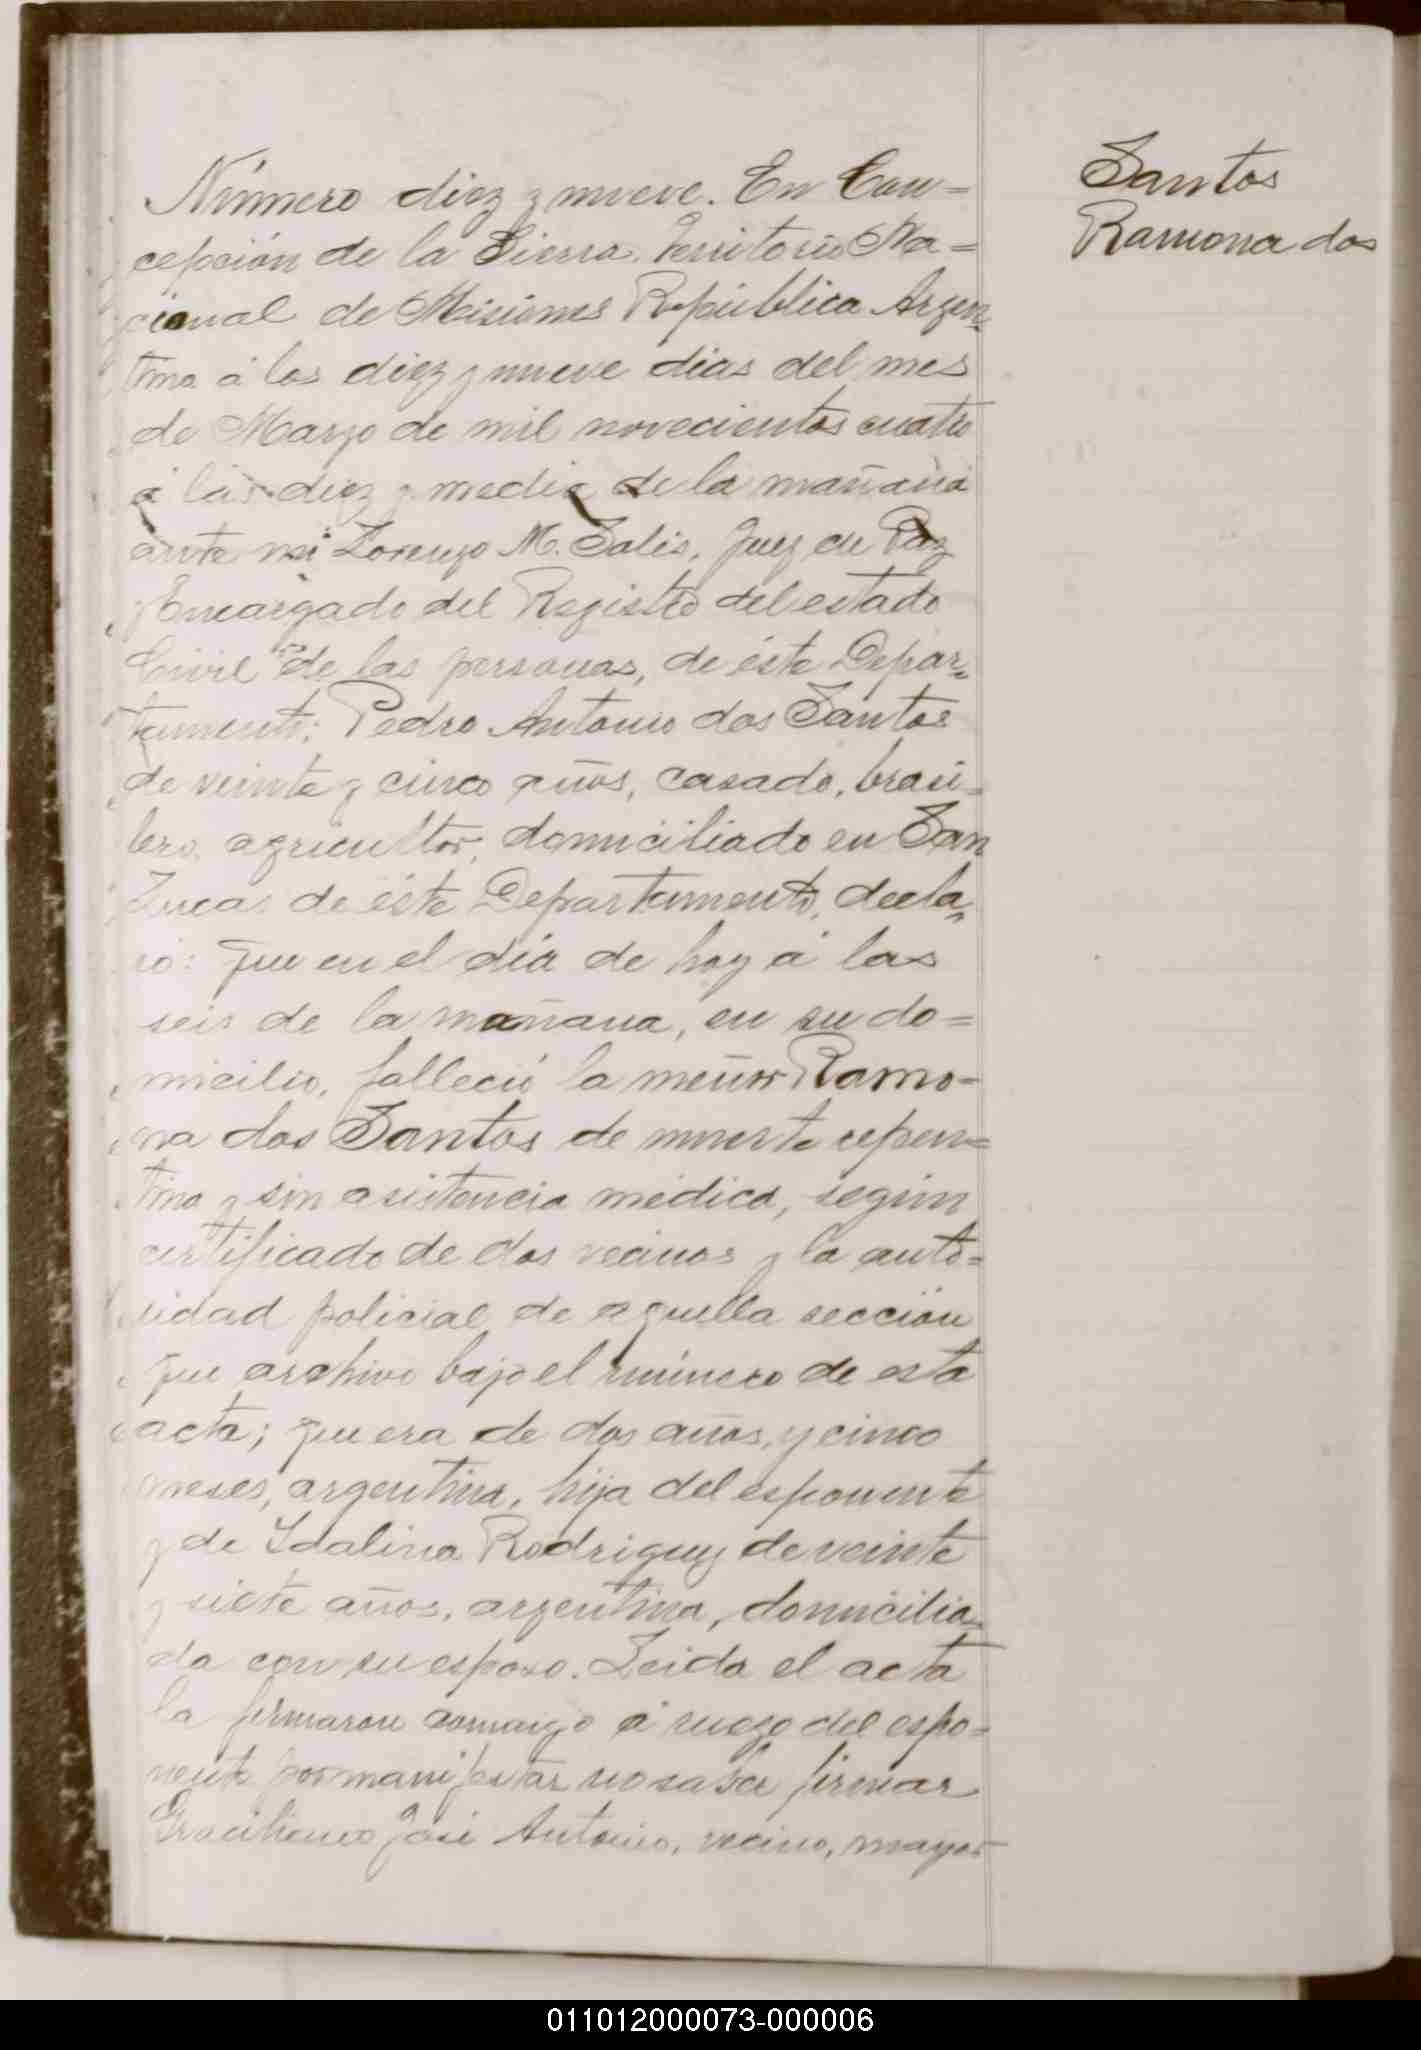 Número diez y nueve. En Con=
cepción de la Sierra. Territorio Na=
cional de Misiones República Argen=
tina á los diez y nueve dias del mes
de Marzo de mil novecientos cuatro
á las diez y media de la mañana
ante mi Lorenzo M. Solis, Juez de Paz
y Encargado del Registro del estado
Civil de las personas, de éste Depar=
tamento; Pedro Antonio dos Santos
de veinte y cinco años, casado, brasi=
lero, agricultor, domiciliado en San
Lucas de éste Departamento, decla=
ró: que en el día de hoy á las
seis de la mañana, en su do=
micilio, falleció la menor Ramo=
na dos Santos de muerte repen=
tina y sin asistencia médica, según
certificado de dos vecinos y la auto=
ridad policial de aquella sección
que archivo bajo el número de esta
acta; que era de dos años, y cinco
meses, argentina, hija del esponente
y de Idalina Rodriguez de veinte
y siete años, argentina, domicilia=
da con su esposo. Leida el acta
la firmaron conmigo á ruego del espo=
nente por manifestar no saber firmar
José Antonio, vecino, mayor
Santos
Ramona dos
011012000073-000006